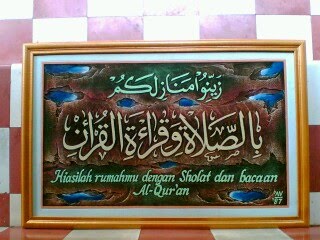 زَيِّنُوا مَنَازِلَكُمْ
بِالصَّلَاةِ وَقِرَاءَةِ الْقُرْآنِ
Hiasilah rumahmu dengan Sholat dan bacaan
Al-Qur'an
87